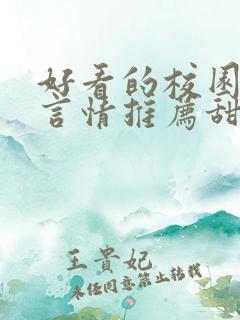 好看的校园
言情推薦甜
王貴妃
未经同意禁止转载